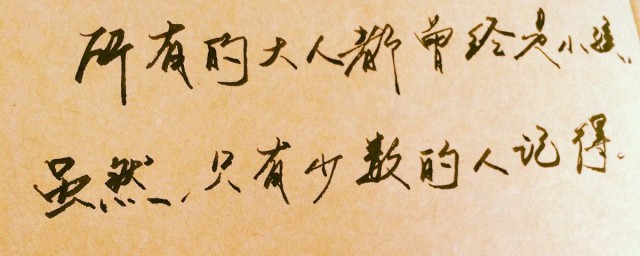 所有的大人都曾经是小孩、
虽然、只有少数的人记得。